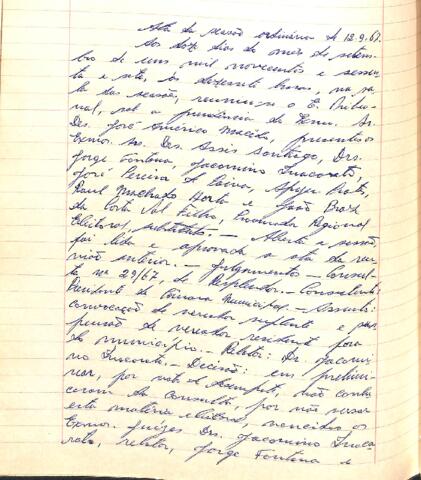 Ata da sessão ordinária de 12.9.67.
Aos doze dias do mes de setem-
bro de um mil novecentos e sessen-
ta e sete, às dezessete horas, na sa-
la das sessões, reuniu-se o E. Tribu-
nal, sob a presidência do Exmo. Sr.
Des. José Américo Macêdo, presentes os
Exmos. Srs. Des. Assis Santiago, Drs.
Jorge Fontana, Jacomino Inacarato,
José Pereira de Paiva,
Raul Machado Horta e João Braz
da Costa Val Filho, Procurador Regional
Eleitoral, substituto. — Aberta a sessão,
foi lida e aprovada a ata da reu-
nião anterior. — Julgamentos — Consul-
ta nº 29/67, de Resplendor. — Consulente:
Presidente da Câmara Municipal. — Assunto:
convocação de vereador suplente e sus-
pensão de vereador residente fora
do município. — Relator: Dr. Jacomi-
no Inacarato. — Decisão: em prelimi-
nar, por voto de desempate, não conhe-
ceram da consulta, por não versar
esta matéria eleitoral, vencidos os
Exmos. Juízes Drs. Jacomino Inaca-
rato, relator, Jorge Fontana e